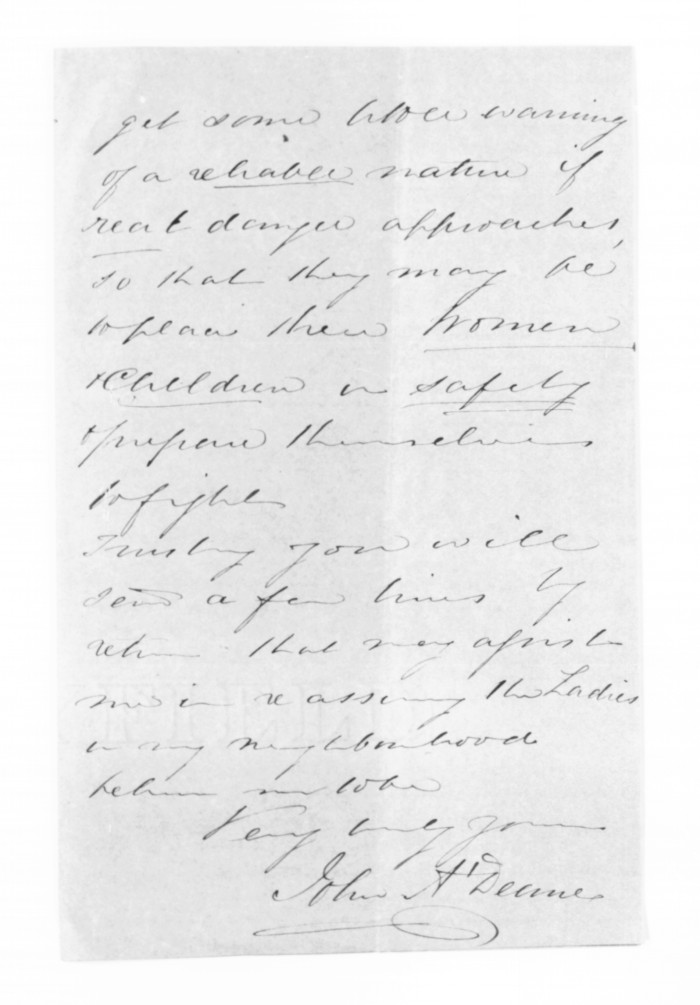 get some little warning
of a reliable nature if
real danger approaches,
so that they may be
to place their Women
& Children in safety
& prepare themselves
to fight
Trusting you will
send a few lines by
return that may assist
me in re assuring the Ladies
in my neighbourhood
believe me to be
Very truly yours
John A Deane